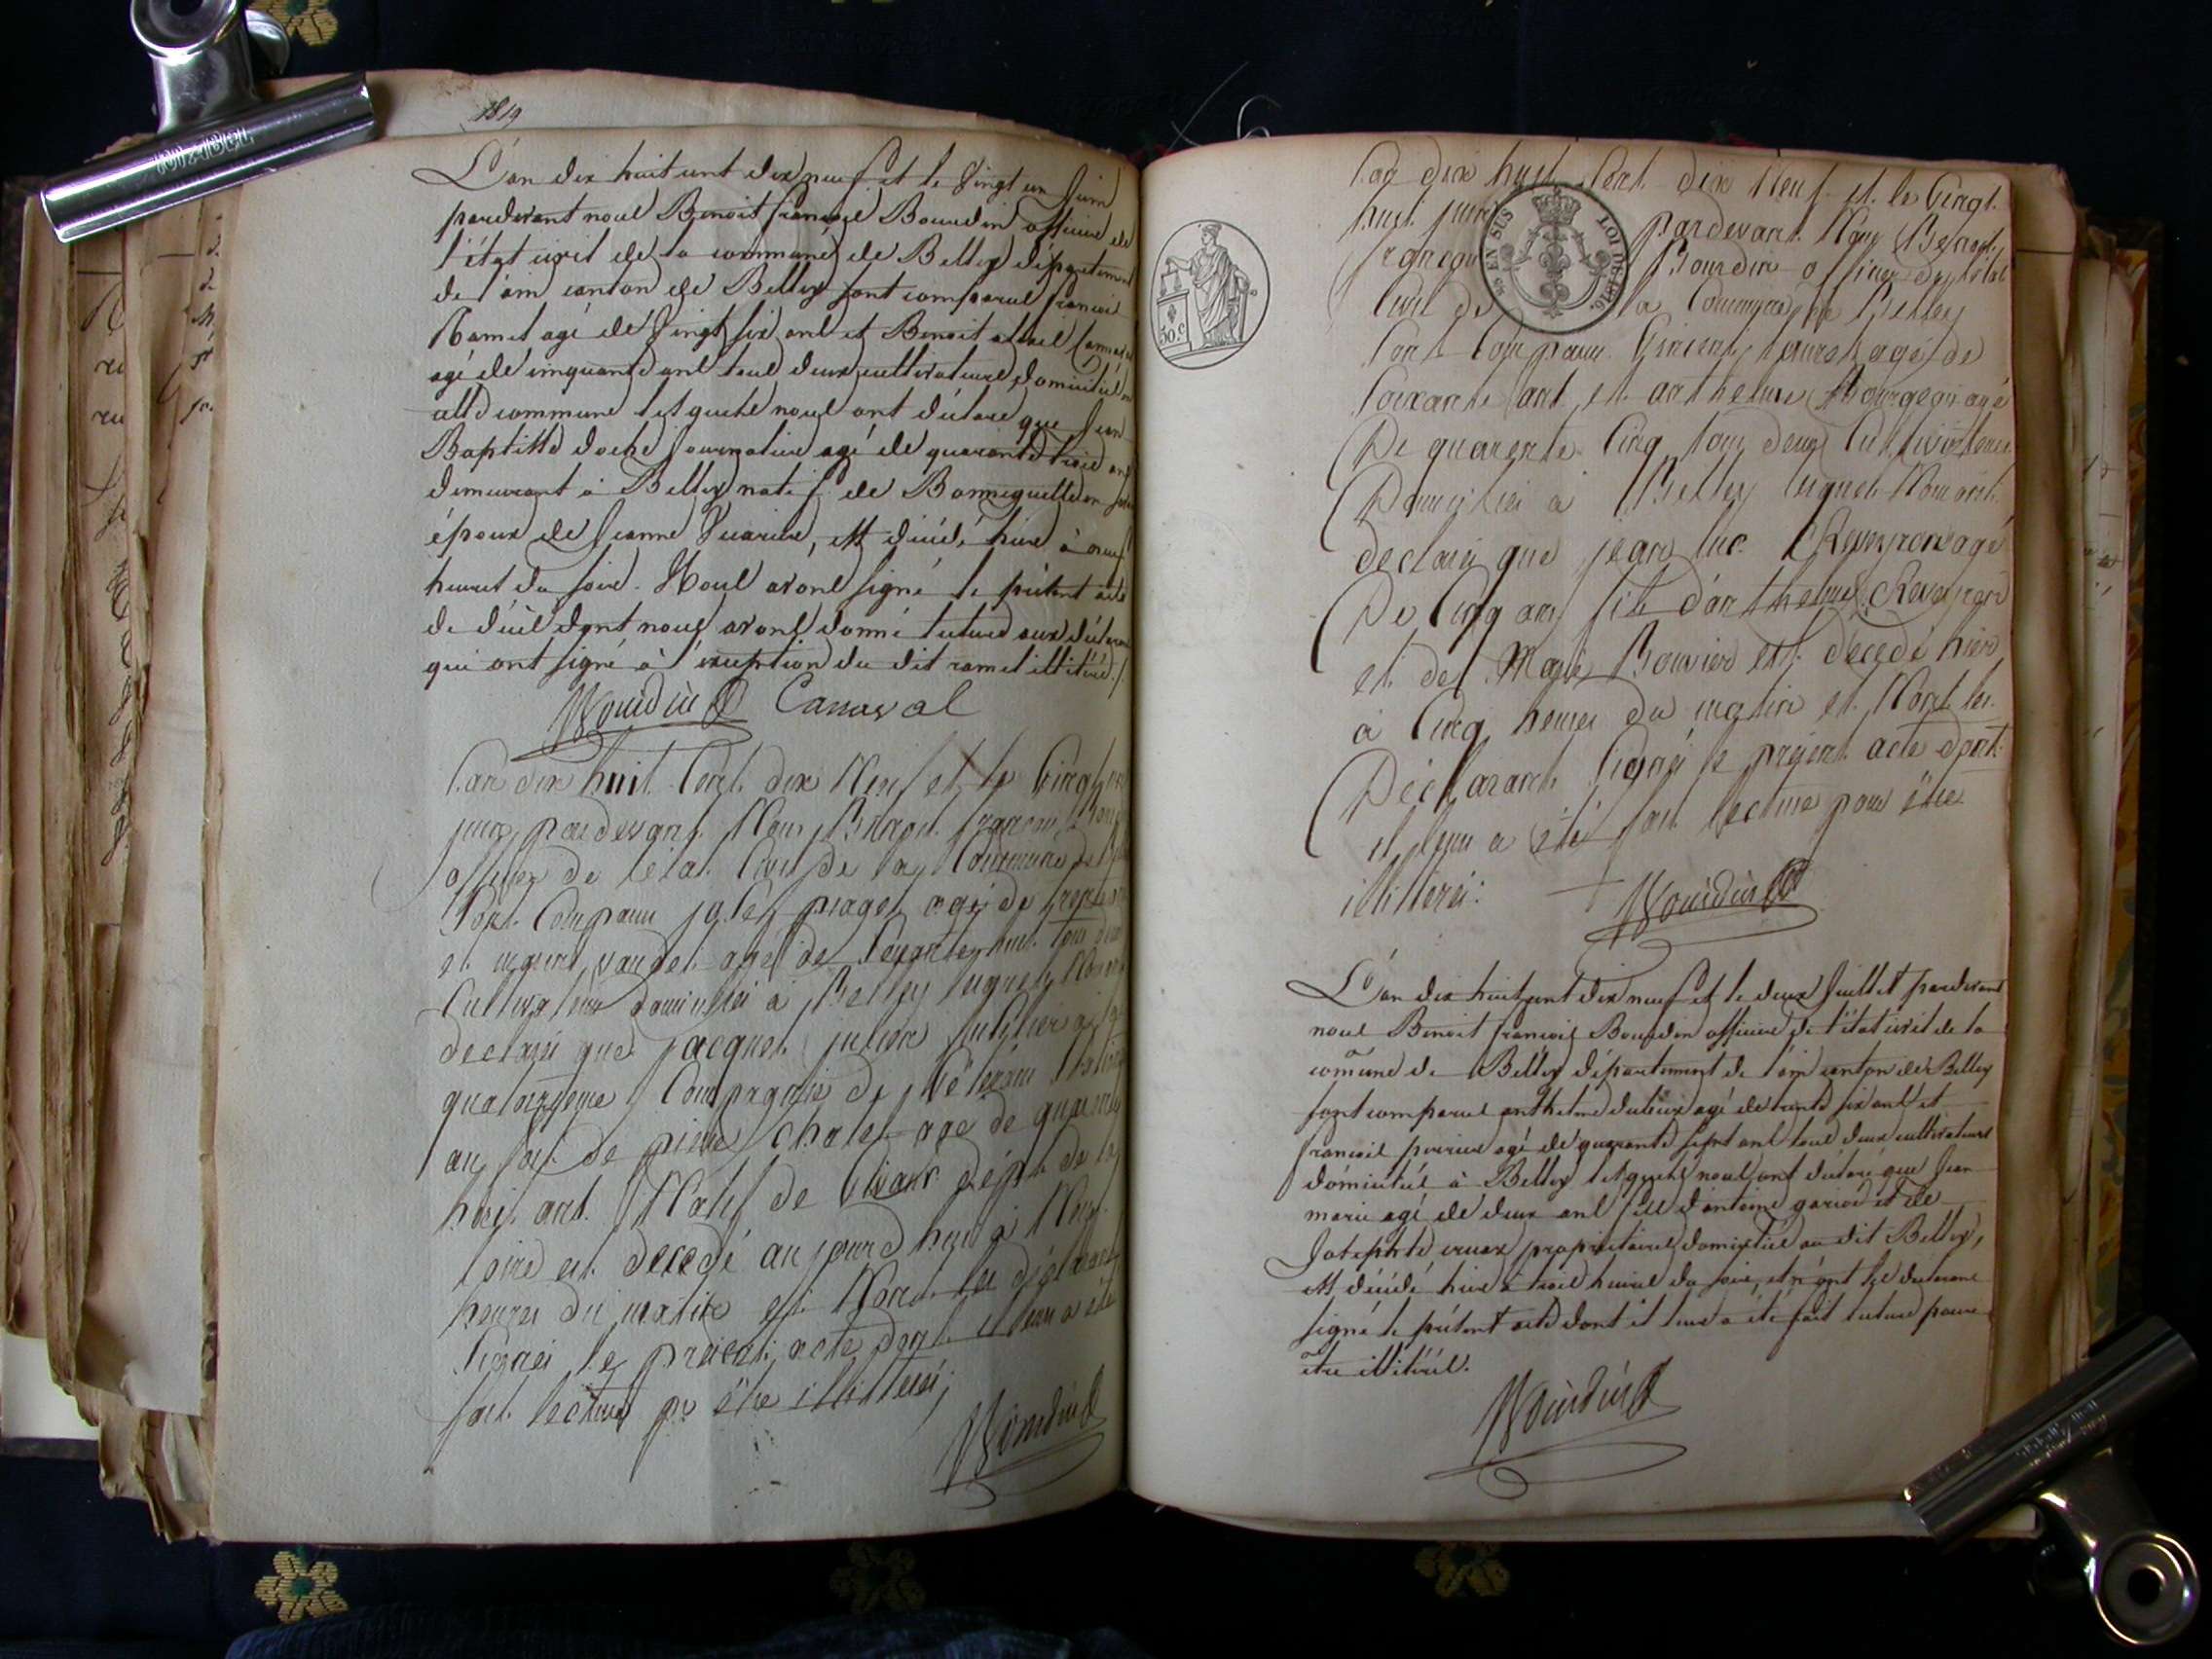 1819
L'an dix huit cent dix neuf et le vingt un Juin
pardevant nous Benoit françois Bourdin officier de
l'état civil de la commune de Belley département
de l'ain canton de Belley sont comparus françois
Ramel agé de vingt six ans et Benoit
agé de cinquante ans tous deux cultivateurs domiciliés
commune lesquels nous ont déclaré que Jean
Baptiste Journalier agé de quarante trois ans
demeurant à Belley natif de en
époux de Jeanne est décédé hier à onze
heures du soir. Nous avons signé le présent acte
de décès dont nous avons donné lecture aux
qui ont signé à l'exception du dit ramel illitéré ./.
Bourdin Canaval
L'an dix huit Cent dix Neuf et le Vingt
juin pardevant Nous Benoit françois
officier de l'état Civil de la Commune de
Sont Comparu piaget agé de
et vaudet agé de Soixante huit tous deux
Cultivateurs domiciliés à Belley lesquels Nous
declaré que jacques julien fusilier
quatorzieme Compagnie de Vétérans
au fort de pierre chatel age de quarante
huit ans Natif de dépt. de la
loire est décedé aujourd'hui à Neuf
heures du matin et N'ont les déclarants
Signés le présent acte dont il leur a été
fait lecture pr être illitterés;
Bourdin
50.c
50 EN SUS LOI DE 1816.
L'an dix huit Cent dix Neuf et le Vingt
huit juin pardevant Nous Benoit
françois Bourdin officier de l'état
Civil de la Commune de Belley
Sont Comparu Vincent agé de
Soixante ans et anthelme Bourgeois agé
De quarente Cinq tous deux Cultivateurs
Domiciliés à Belley lesquels Nous ont
declaré que jean luc Reveyron agé
De Cinq ans fils d'anthelme Reveyron
et de Marie Bouvier est décedé hier
à Cinq heures du matin et N'ont les
Déclarants Signés le present acte dont
il leur a été fait lecture pour être
illitterés:
Bourdin
L'an dix huit cent dix neuf et le deux Juillet pardevant
nous Benoit françois Bourdin officier de l'état civil de la
comune de Belley département de l'ain canton de Belley
sont comparus anthelme agé de trente six ans et
françois agé de quarante sept ans tous deux cultivateurs
domiciliés à Belley lesquels nous ont déclaré que Jean
marie agé de deux ans fils d'antoine et de
Josephte propriétaires domiciliés au dit Belley,
est décédé hier à trois heures du soir, et n'ont les déclarans
signé le présent acte dont il leur a été fait lecture pour
être illitérés.
Bourdin